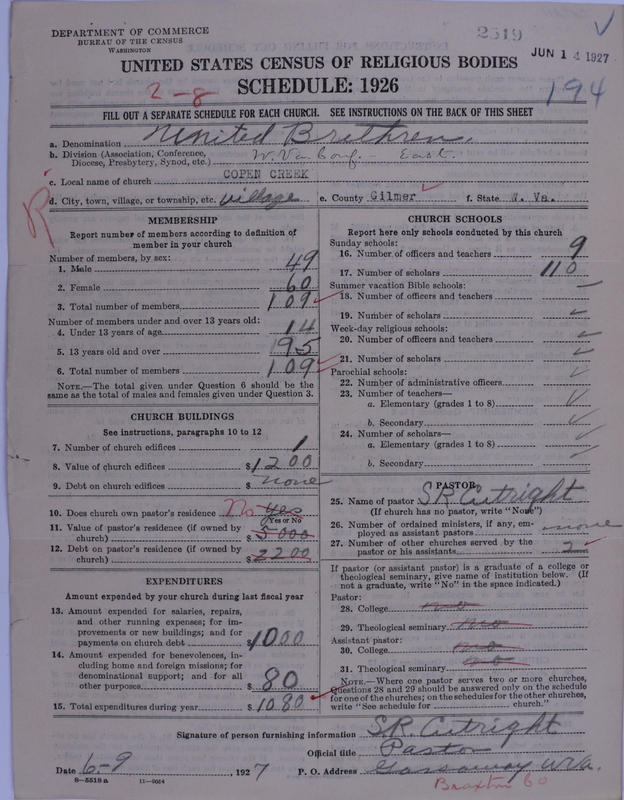 DEPARTMENT OF COMMERCE
BUREAU OF THE CENSUS
WASHINGTON
2519
JUN 14 1927
UNITED STATES CENSUS OF RELIGIOUS BODIES
SCHEDULE: 1926
2-8
194
FILL OUT A SEPARATE SCHEDULE FOR EACH CHURCH. SEE INSTRUCTIONS ON THE BACK OF THIS SHEET
a. Denomination United Brethren
b. Division (Association, Conference, Diocese, Presbytery, Synod, etc.) W. Va Conf. - East.
c. Local name of church COPEN CREEK
d. City, town, village, or township, etc. village e. County Gilmer f. State W. Va.
R
MEMBERSHIP
Report number of members according to definition of member in your church
Number of members, by sex:
1. Male 49
2. Female 60
3. Total number of members 109
Number of members under and over 13 years old:
4. Under 13 years of age 14
5. 13 years old and over 95
6. Total number of members 109
NOTE.—The total given under Question 6 should be the same as the total of males and females given under Question 3.
CHURCH BUILDINGS
See instructions, paragraphs 10 to 12
7. Number of church edifices 1
8. Value of church edifices $1200
9. Debt on church edifices $ none
10. Does church own pastor's residence No Yes
Yes or No
11. Value of pastor's residence (if owned by church) $ 5000
12. Debt on pastor's residence (if owned by church) $ 2200
EXPENDITURES
Amount expended by your church during last fiscal year
13. Amount expended for salaries, repairs, and other running expenses; for improvements or new buildings; and for payments on church debt $1000
14. Amount expended for benevolences, including home and foreign missions; for denominational support; and for all other purposes $ 80
15. Total expenditures during year $ 1080
CHURCH SCHOOLS
Report here only schools conducted by this church
Sunday schools:
16. Number of officers and teachers 9
17. Number of scholars 110
Summer vacation Bible schools:
18. Number of officers and teachers
19. Number of scholars
Week-day religious schools:
20. Number of officers and teachers
21. Number of scholars
Parochial schools:
22. Number of administrative officers
23. Number of teachers—
a. Elementary (grades 1 to 8)
b. Secondary
24. Number of scholars—
a. Elementary (grades 1 to 8)
b. Secondary
PASTOR
25. Name of pastor S R Cutright
(If church has no pastor, write "None")
26. Number of ordained ministers, if any, employed as assistant pastors none
27. Number of other churches served by the pastor or his assistants 2
If pastor (or assistant pastor) is a graduate of a college or theological seminary, give name of institution below. (If not a graduate, write "No" in the space indicated.)
Pastor:
28. College no
29. Theological seminary no
Assistant pastor:
30. College no
31. Theological seminary no
NOTE.—Where one pastor serves two or more churches, Questions 28 and 29 should be answered only on the schedule for one of the churches; on the schedules for the other churches, write "See schedule for church."
Signature of person furnishing information S. R. Cutright
Official title Pastor
Date 6-9 1927 P. O. Address Gassaway W Va.
8-5518a 11-9664
Braxton Co